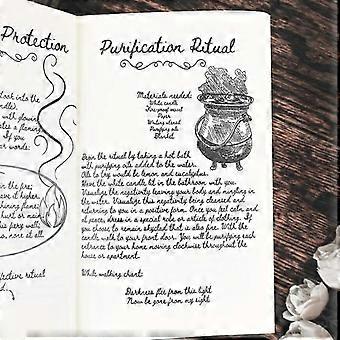 Protection
look into the
candle).
with glowing
akes a flaming
If you
r words:
n the fire;
ve it higher,
hining flame,
hurt or main
is fiery wall;
no, none at all
ective ritual
Purification Ritual
Materials needed:
White candle
Fire-proof vessel
Paper
Writing utensil
Purifying oils
Blanket
Begin the ritual by taking a hot bath
with purifying oils added to the water.
Oils to try would be lemon and eucalyptus.
Have the white candle lit in the bathroom with you.
Visualize the negativity leaving your body and mingling in
the water. Visualize this negativity being cleansed and
returning to you in a positive form. Once you feel calm and
at peace, dress in a special robe or article of clothing. If
you choose to remain skyclad that is also fine. With the
candle walk to your front door. You will be purifying each
entrance to your home moving clockwise throughout the
house or apartment.
While walking chant:
Darkness flee from this light
Now be gone from my sight